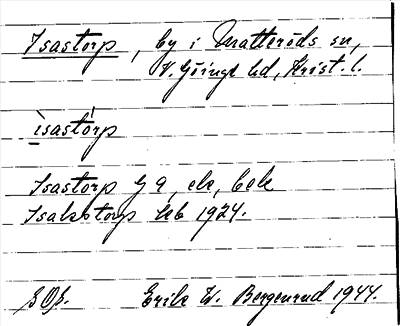 Isastorp, by i Matteröds sn,
V. Göinge hd, Krist. l.
ìsastórp
Isastorp GA, ek, bek
Isakstorp kb 1924.
Erik W. Bergenrud 1944.